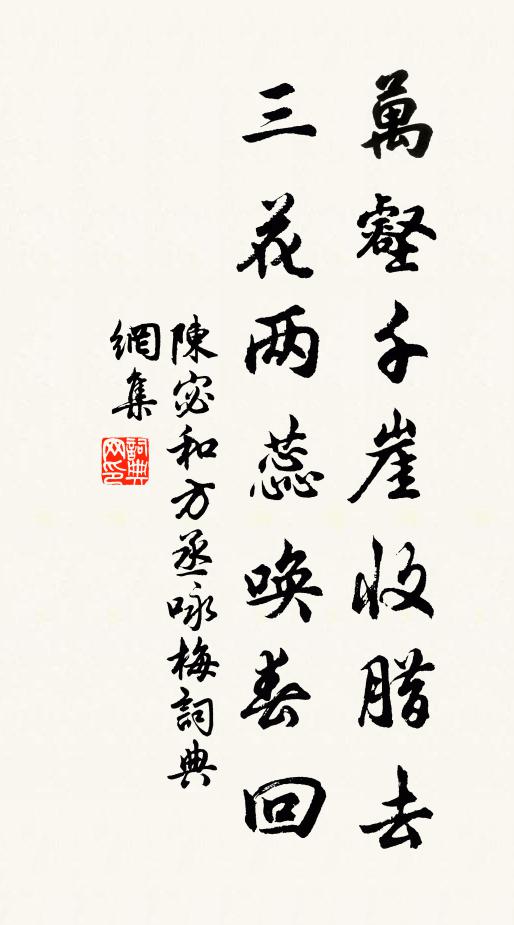 萬壑千崖收腊去
三花两蕊唤春回
陳宓和方丞咏梅詞典
網集
詞典
网印